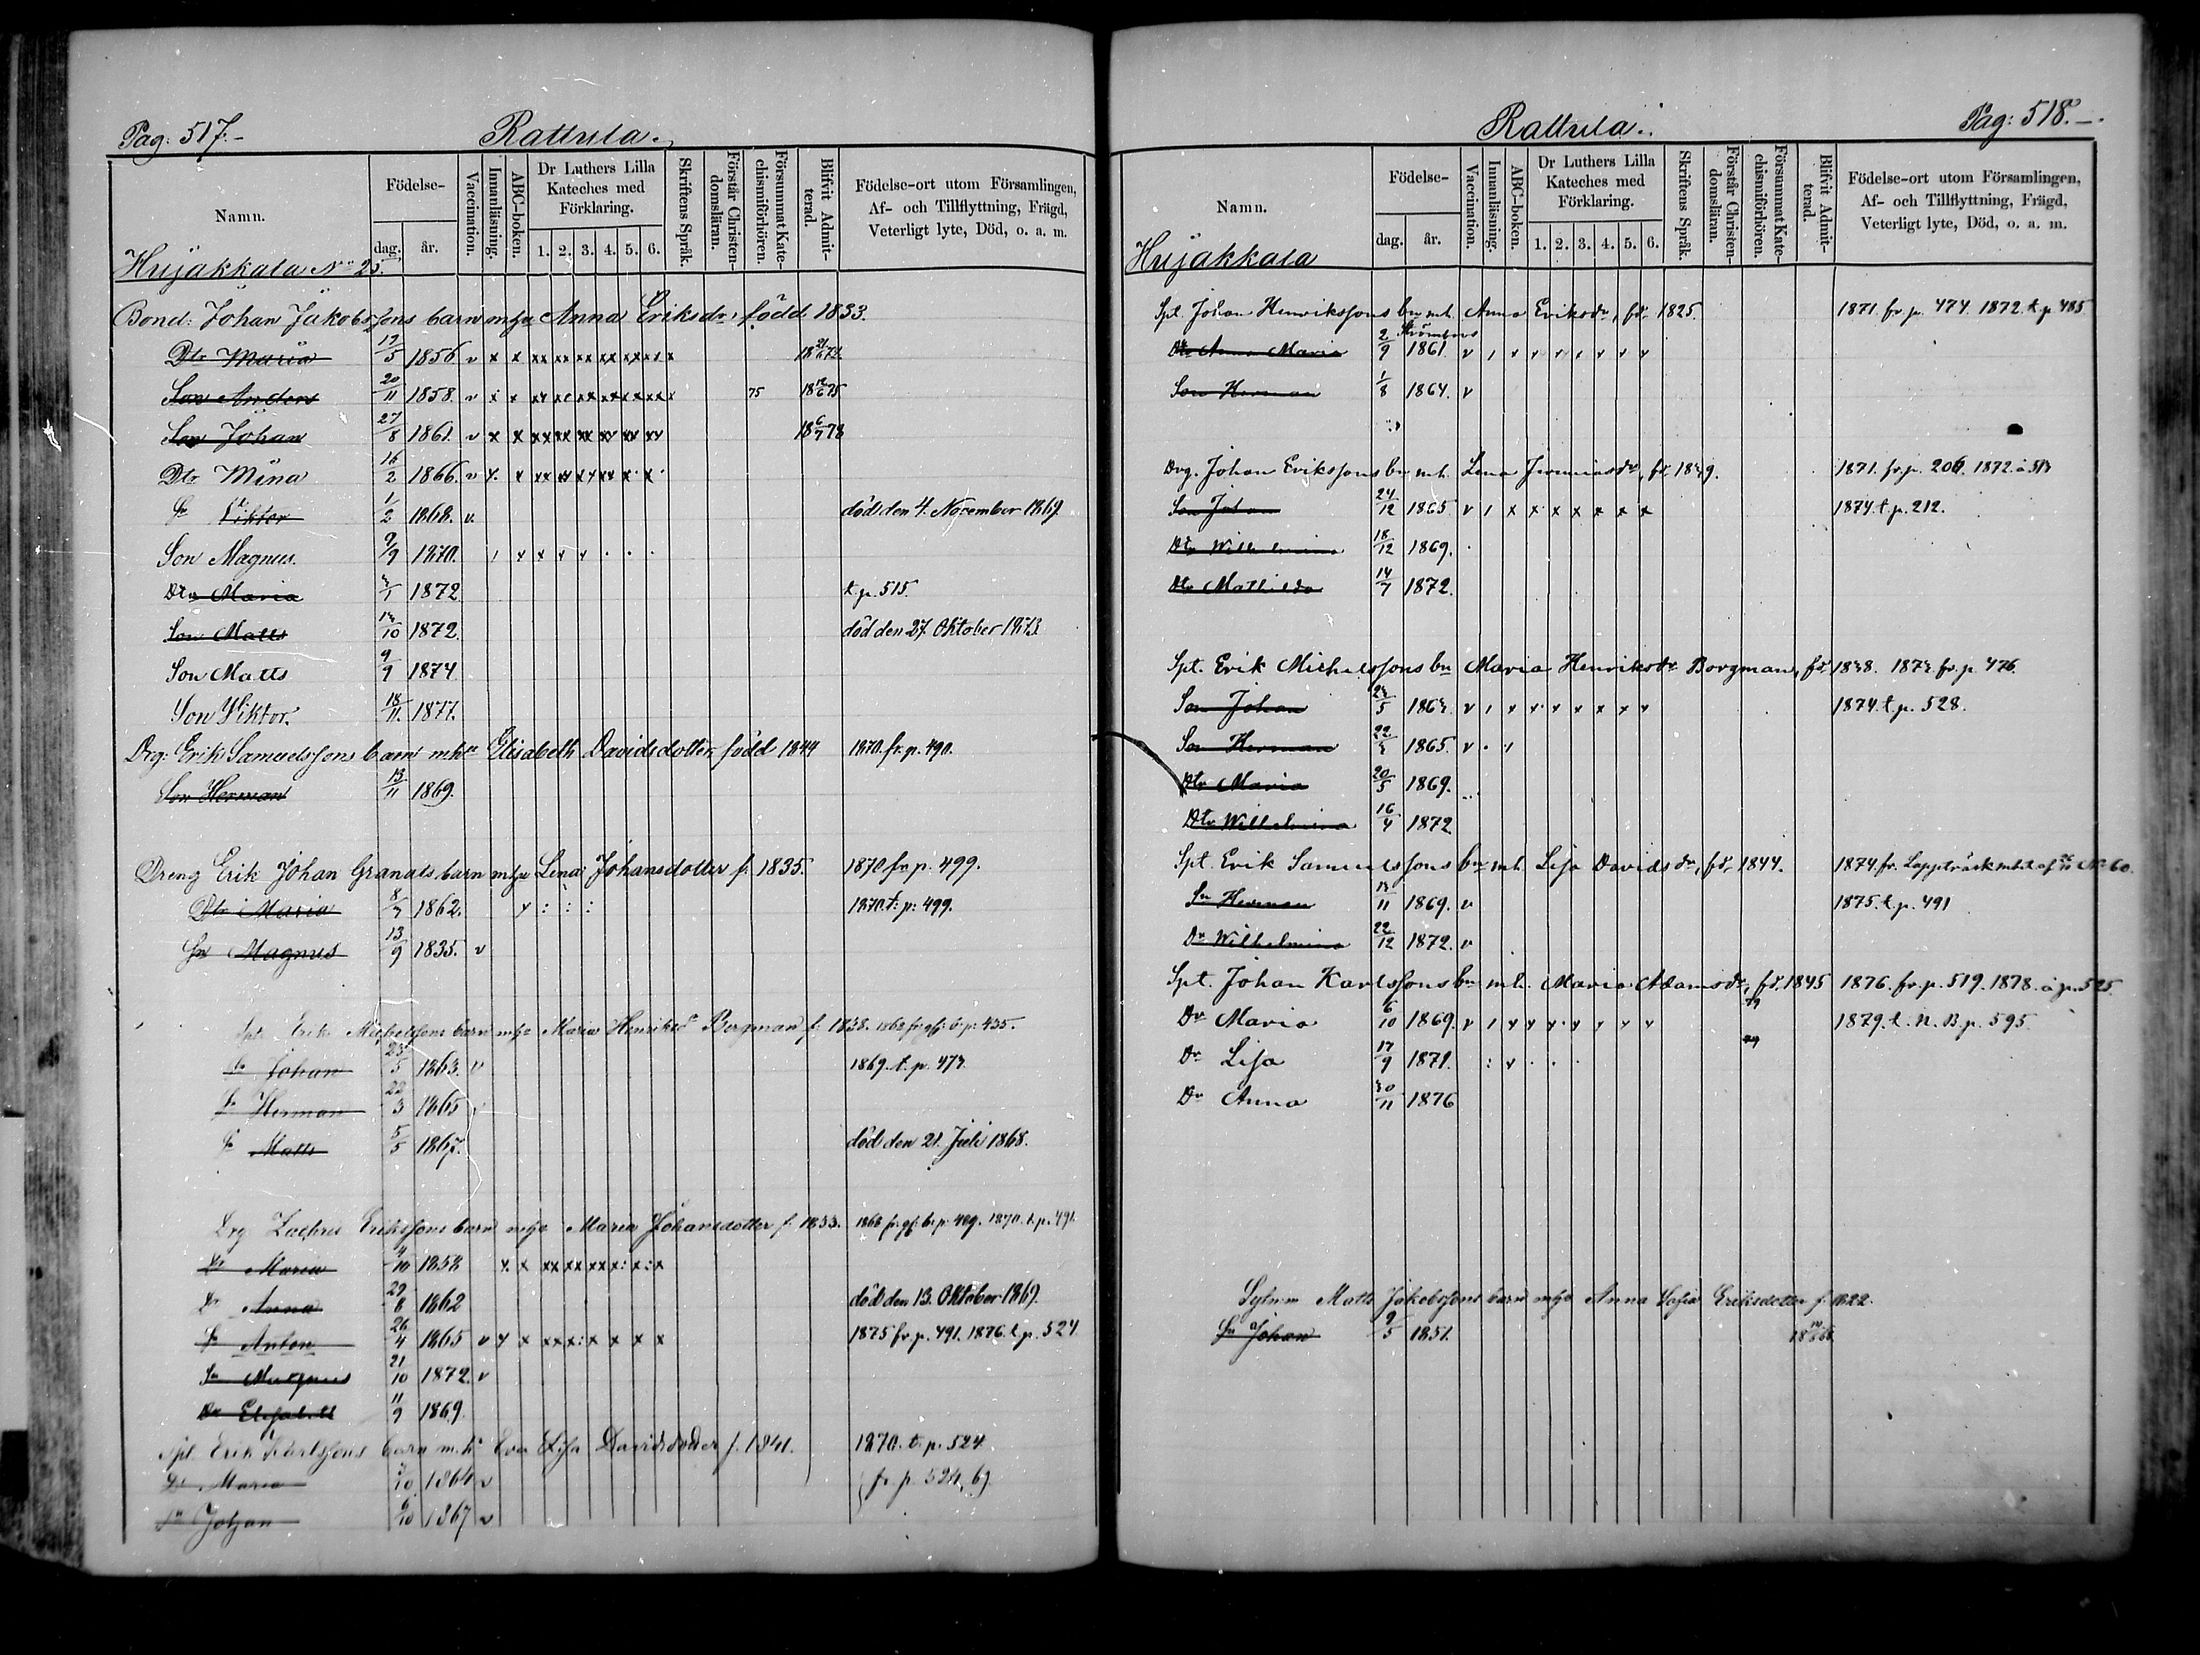 Pag: 517.-
Rattula.
Namn.
Födelse-
dag. år.
Vaccination.
Innanläsning.
ABC-boken.
Dr Luthers Lilla Kateches med Förklaring.
1. 2. 3. 4. 5. 6.
Skriftens Språk.
Förstår Christen-domsläran.
Försummat Kate-chismiförhören.
Blifvit Admit-terad.
Födelse-ort utom Församlingen,
Af- och Tillflyttning, Frägd,
Veterligt lyte, Död, o. a. m.
Hujakkala No 25.
Bond: Johan Jakobssons barn m. h. Anna Eriksdr, född 1833.
Dtr Maria 17/5 1856 v x x xx xx xx xx xx xx x
Son Anders 20/11 1858. v x x xx xx xx xx xx x 75
Son Johan 27/8 1861. v x x xx xx xx xx xx xx 18 6/7 78
Dtr Mina 16/2 1866. v x. x xx xx xx xx x. x.
Sn Viktor 1/2 1868. v. död den 4. November 1869.
Son Magnus. 9/9 1870.
Dtr Maria 1872 t. p. 515.
Son Matts 1872. död den 27. Oktober 1873.
Son Matts 9/9 1874
Son Viktor. 18/11. 1877.
Drg: Erik Samuelssons barn m. h. Elisabeth Davidsdotter, född 1844 1870. fr. p. 490.
Son Herman 13/11 1869.
Dreng Erik Johan Granats barn m. h. Lena Johansdotter f. 1835. 1870 fr. p. 499.
Dtr Maria 8/7 1862. x : : : 1870. t. p. 499.
Sn Magnus 13/9 1835. v
Spt. Erik Michelssons barn m. h. Maria Henriksdr Bergman f. 1838. 1868 fr. gf. b. p. 435.
Sn Johan 23/5 1863. v 1869. t. p. 473.
Sn Herman 22/3 1865
Sn Matts 5/5 1867. död den 21. Juli 1868.
Drg Erikssons barn m. h. Maria Johansdotter f. 1833. 1868 fr. gf. b. p. 489. 1870. t. p. 491.
Dr Maria 4/10 1858 x. x xx xx xx x: x: x
Dr Anna 29/8 1862 död den 13. Oktober 1869.
Sn Anton 26/4 1865 v x x xx x: x x x x 1875 fr. p. 491. 1876 t. p. 524
Sn Magnus 21/10 1872. v
Dr Elisabeth 11/9 1869.
Spt. Erik Karlssons barn m. h. Eva Lisa Davidsdotter f. 1841. 1870. t. p. 524.
Dr Maria 1864 v fr. p. 524, 69.
Sn Johan 6/10 1867 v
Rattula.
Pag: 518.-
Namn.
Födelse-
dag. år.
Vaccination.
Innanläsning.
ABC-boken.
Dr Luthers Lilla Kateches med Förklaring.
1. 2. 3. 4. 5. 6.
Skriftens Språk.
Förstår Christen-domsläran.
Försummat Kate-chismiförhören.
Blifvit Admit-terad.
Födelse-ort utom Församlingen,
Af- och Tillflyttning, Frägd,
Veterligt lyte, Död, o. a. m.
Hujakkala
Spt. Johan Henrikssons bn m. h. Anna Eriksdr, fd. 1825. 1871. fr. p. 474. 1872. t. p. 485
Strömfors
Dtr Anna Maria 2/9 1861. v
Son Herman 1/8 1864. v
Drg. Johan Erikssons bn m. h. Lena Jeremiasdr, fd. 1839. 1871. fr. p. 206. 1872. å
Son Johan 24/12 1865. v 1 x x x x x x x 1874. t. p. 212.
Dtr Wilhelmina 18/12 1869.
Dtr Mathilda 14/7 1872.
Spt. Erik Michelssons bn Maria Henriksdr Borgman, fd. 1838. 1873. fr. p. 476.
Son Johan 23/5 1863. v 1874. t. p. 528.
Son Herman 22/3 1865. v
Dtr Maria 20/5 1869.
Dtr Wilhelmina 16/4 1872
Spt. Erik Samuelssons bn m. h. Lisa Davidsdr, fd. 1844. 1874. fr. Lappträsk No 60.
Sn Herman 13/11 1869. v 1875. t. p. 491
Dr Wilhelmina 22/12 1872. v
Spt. Johan Karlssons bn m. h. Maria Adamsdr, fd. 1845 1876. fr. p. 519. 1878. å p. 525.
Dr Maria 6/10 1869. v 79 1879. t. N. B. p. 595.
Dr Lisa 17/9 1871. 79
Dr Anna 30/11 1876
Matts Jakobssons barn m. h. Anna Sofia Eriksdotter f. 1822.
Sn Johan 9/5 1851.